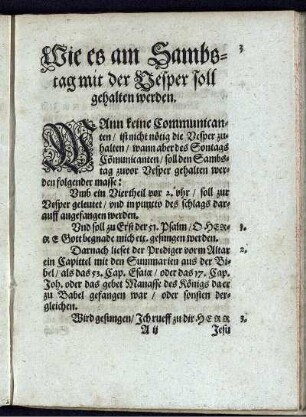 3
Wie es am Sambs-
tag mit der Vesper soll
gehalten werden.
WAnn keine Communican-
ten / ist nicht nötig die Vesper zu-
halten / wann aber des Sontags
Cōmunicanten / soll den Sambs-
tag zuvor Vesper gehalten wer-
den folgender masse:
Umb ein Viertheil vor 2. uhr / soll zur
Vesper geleutet / und in puncto des schlags dar-
auff angefangen werden.
Und soll zu Erst der 51. Psalm / O HER 1.
RE Gott begnade mich etc. gesungen werden.
Darnach lieset der Prediger vorm Altar 2.
ein Capittel mit den Summarien aus der Bi-
bel / als das 53. Cap. Esaiæ / oder das 17. Cap.
Joh. oder das gebet Manasse des Königs da er
zu Babel gefangen war / oder sonsten der-
gleichen.
Wird gesungen / Ich rueff zu dir HERR 3.
A ij Jesu